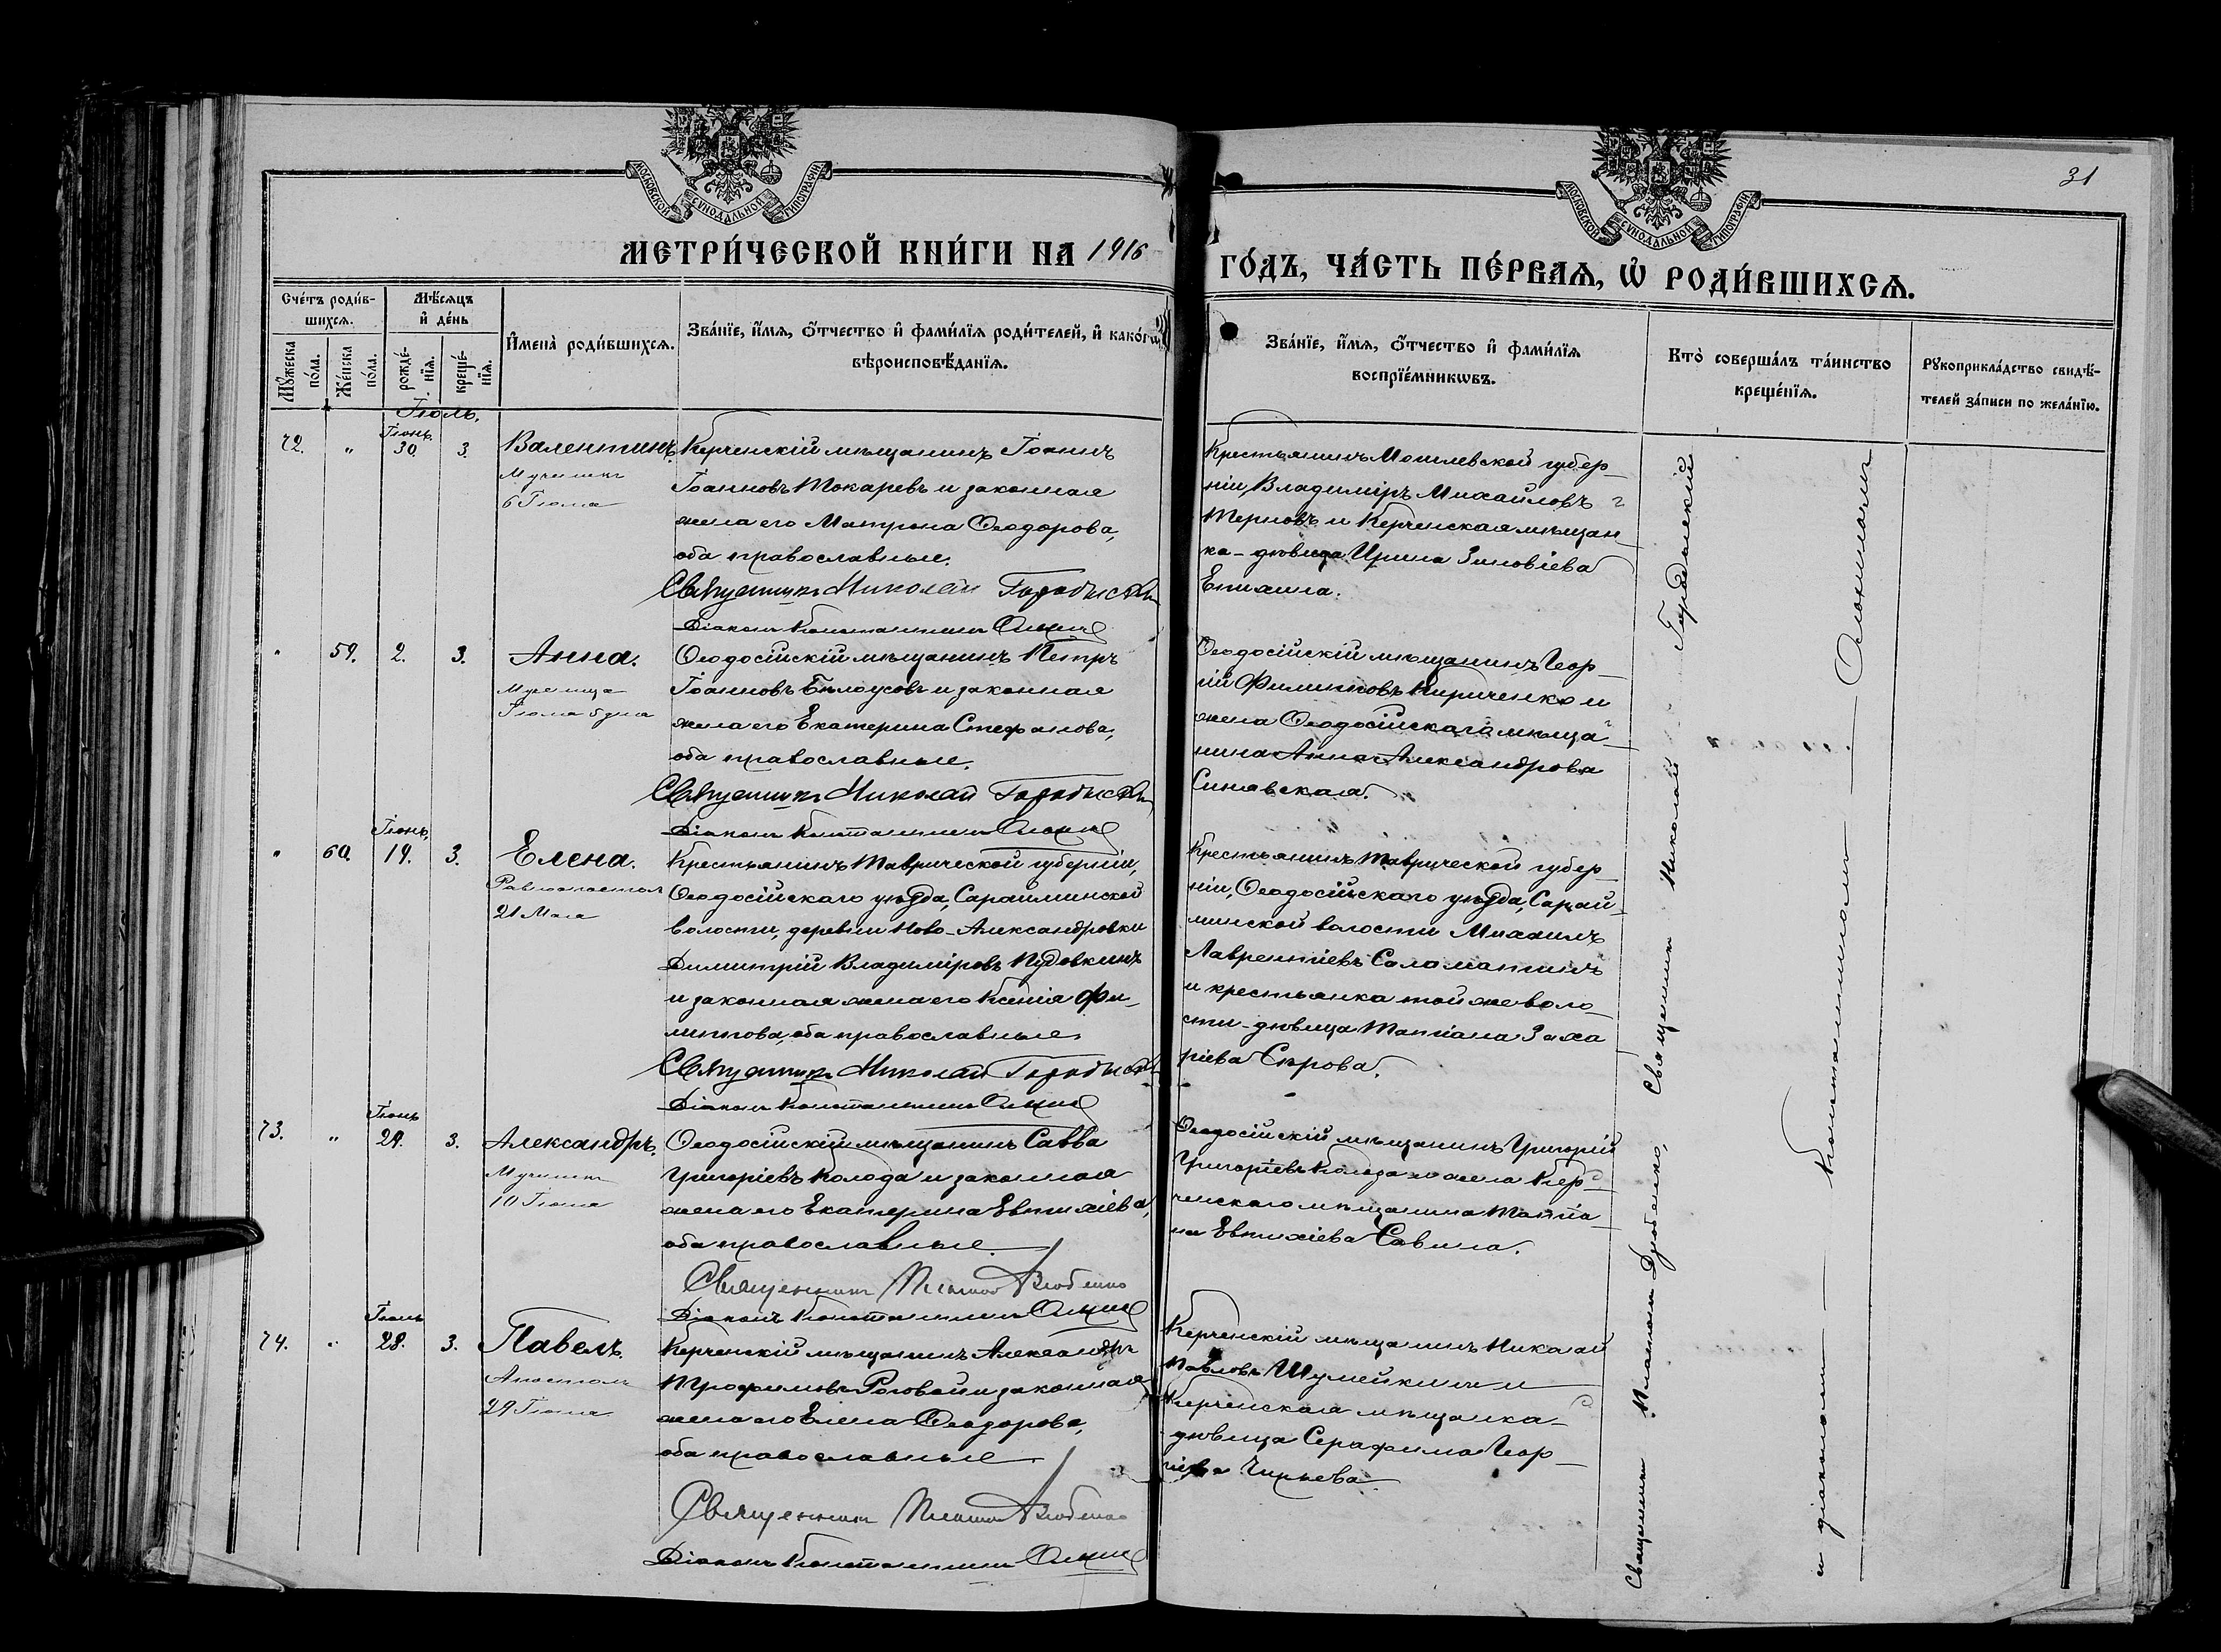 31
МОСКОВСКОЙ СѴНОДАЛЬНОЙ ТИПОГРАФІИ
МОСКОВСКОЙ СѴНОДАЛЬНОЙ ТИПОГРАФІИ
МЕТРИ́ЧЕСКОЙ КНИ́ГИ НА 1916
ГО́ДЪ, ЧА́СТЬ ПЕ́РВАѦ, Ѽ РОДИ́ВШИХСѦ.
Сче́тъ роди́в-
шихсѧ.
Мꙋ́жеска по́ла.
Же́нска по́ла.
Мѣ́сѧцъ
и҆ де́нь
рожде́-
нїѧ.
креще́-
нїѧ.
И҆мена̀ роди́вшихсѧ.
Зва́нїе, и҆́мѧ, ѻ҆́тчество и҆ фами́лїѧ роди́телей, и҆ како́гѡ
вѣроисповѣ́данїѧ.
Зва́нїе, и҆́мѧ, ѻ҆́тчество и҆ фами́лїѧ
воспрїе́мникѡвъ.
Кто̀ соверша́лъ та́инство
креще́нїѧ.
Рꙋкоприкла́дство свидѣ́-
телей за́писи по жела́нїю.
Іюль.
72. " Іюнь 30. 3. Валентинъ.
Мученикъ
6 Іюля
Керченскій мѣщанинъ Іоаннъ
Іоанновъ Токаревъ и законная
жена его Матрона Ѳеодорова,
оба православные.
Николай
Діаконъ Константинъ
Крестьянинъ Могилевской губер-
ніи, Владиміръ Михайловъ
Терновъ и Керченская мѣщан-
ка - дѣвица Ирина Зиновіева
" 59. 2. 3. Анна.
Мученица
Іюля 5 дня
Ѳеодосійскій мѣщанинъ Петръ
Іоанновъ Бѣлоусовъ и законная
жена его Екатерина Стефанова,
оба православные.
Николай
Діаконъ Константинъ
Ѳеодосійскій мѣщанинъ Геор-
гій Филипповъ Кириченко и
жена Ѳеодосійскаго мѣща-
нина Анна Александрова
Синявская.
" 60. Іюнь, 19. 3. Елена.
Равноапостол
21 Мая
Крестьянинъ Таврической губерніи,
Ѳеодосійскаго уѣзда, Сарайминской
волости, деревни Ново-Александровки
Димитрій Владиміровъ Пудовкинъ
и законная жена его Ксенія Фи-
липпова, оба православные.
Николай
Діаконъ Константинъ
Крестьянинъ Таврической губер-
ніи, Ѳеодосійскаго уѣзда, Сарай-
минской волости Михаилъ
Лаврентіевъ Саламатинъ
и крестьянка той же воло-
сти - дѣвица Татіана Заха
ріева Сѣрова.
73. " Іюнь 29. 3. Александръ.
Мученикъ
10 Іюля
Ѳеодосійскій мѣщанинъ Савва
Григоріевъ Колода и законная
жена его Екатерина Евтихіева,
оба православные.
Священникъ
Діаконъ Константинъ
Ѳеодосійскій мѣщанинъ Григорій
Григоріевъ Колода и жена Кер-
ченскаго мѣщанина Татіа-
на Евтихіева Савина.
74. " Іюнь 28. 3. Павелъ.
Апостолъ
29 Іюня
Керченскій мѣщанинъ Александръ
Трофимовъ Роговой и законная
жена его Елена Ѳеодорова,
оба православные.
Священникъ
Діаконъ Константинъ
Керченскій мѣщанинъ Николай
Павловъ Шумейкинъ и
Керченская мѣщанка -
дѣвица Серафима Геор-
гіева
Священникъ Платонъ Дзюбенко, Священникъ Николай
и діакономъ Константиномъ